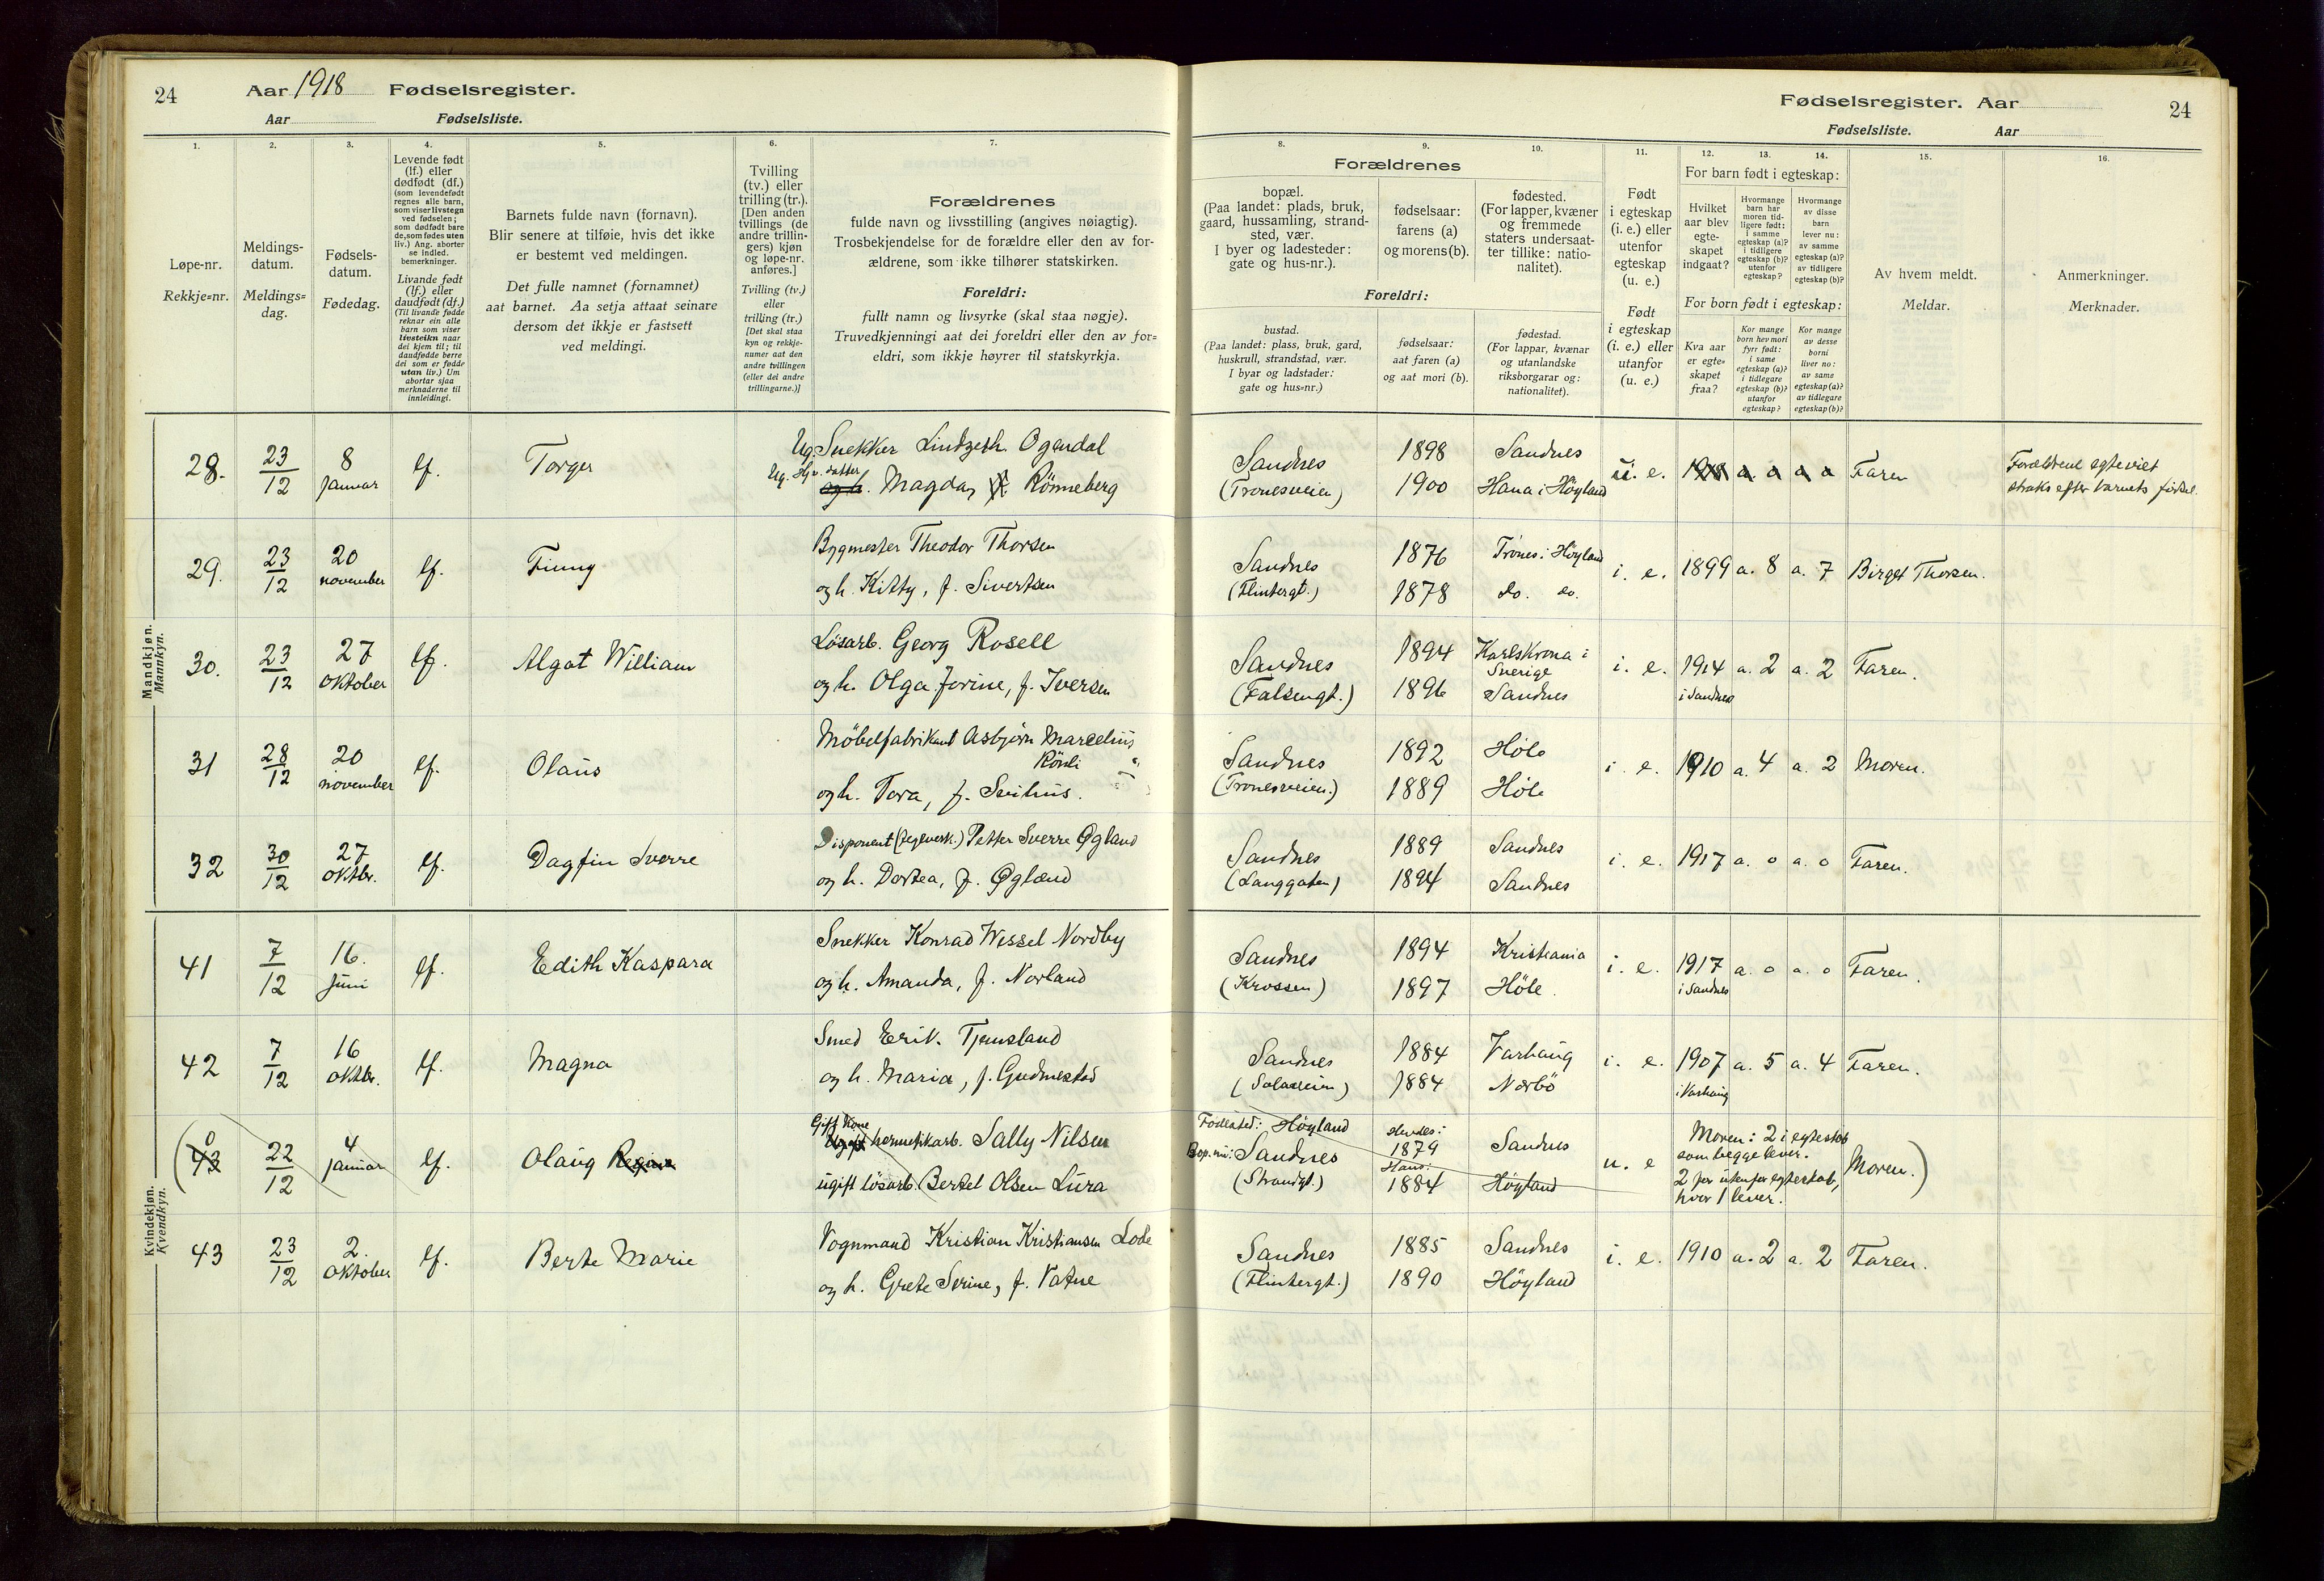 24
Aar 1918 Fødselsregister.
Aar Fødselsliste.
Fødselsregister. Aar
Fødselsliste. Aar
24
1.
Løpe-nr.
Rekkje=nr.
2.
Meldings-
datum.
Meldings=
dag.
3.
Fødsels-
datum.
Fødedag.
4.
Levende født
(lf.) eller
dødfødt (df.)
(som levendefødt
regnes alle barn,
som viser livstegn
ved fødselen;
som dødfødt bare
de, som fødes uten
liv.) Ang. aborter
se indled.
bemerkninger.
Livande født
(lf.) eller
daudfødt (df.)
(Til livande fødde
reknar ein alle
barn som viser
livsteikn naar
dei kjem til; til
daudfødde berre
dei som er fødde
utan liv.) Um
abortar sjaa
merknaderne til
innleidingi.
5.
Barnets fulde navn (fornavn).
Blir senere at tilføie, hvis det ikke
er bestemt ved meldingen.
Det fulle namnet (fornamnet)
aat barnet. Aa setja attaat seinare
dersom det ikkje er fastsett
ved meldingi.
6.
Tvilling
(tv.) eller
trilling (tr.).
[Den anden
tvillings (de
andre trillin-
gers) kjøn
og løpe-nr.
anføres.]
Tvilling (tv.)
eller
trilling (tr.)
[Det skal staa
kyn og rekkje-
numer aat den
andre tvillingen
(eller dei andre
trillingarne.)]
7.
Forældrenes
fulde navn og livsstilling (angives nøiagtig).
Trosbekjendelse for de forældre eller den av for-
ældrene, som ikke tilhører statskirken.
Foreldri:
fullt namn og livsyrke (skal staa nøgje).
Truvedkjenningi aat dei foreldri eller den av for=
eldri, som ikkje høyrer til statskyrkja.
8.
Forældrenes
bopæl.
(Paa landet: plads, bruk,
gaard, hussamling, strand-
sted, vær.
I byer og ladesteder:
gate og hus-nr.).
Foreldri:
bustad.
(Paa landet: plass, bruk, gard,
huskrull, strandstad, vær.
I byar og ladstader:
gate og hus=nr.)
9.
fødselsaar:
farens (a)
og morens (b).
fødselsaar:
aat faren (a)
og aat mori (b).
10.
fødested.
(For lapper, kvæner
og fremmede
staters undersaat-
ter tillike: natio-
nalitet).
fødestad.
(For lappar, kvænar
og utanlandske
riksborgarar og:
nationalitet).
11.
Født
i egteskap
(i. e.) eller
utenfor
egteskap
(u. e.)
Født
i egteskap
(i. e.) eller
utanfor
(u. e.)
12. 13. 14.
For barn født i egteskap:
Hvilket
aar blev
egte-
skapet
indgaat?
Hvormange
barn har
moren tid-
ligere født:
i samme
egteskap (a)?
i tidligere
egteskap (b)?
utenfor
egteskap?
Hvormange
av disse
barn
lever nu:
av samme
egteskap (a)?
av tidligere
egteskap (b)?
For born født i egteskap:
Kva aar
er egte=
skapet
fraa?
Kor mange
born hev mori
fyrr født:
i same
egteskap (a)?
i tidlegare
egteskap (b)?
utanfor
egteskap?
Kor mange
av desse
borni
liver no:
av same
egteskap (a)?
av tidlegare
egteskap (b)?
15.
Av hvem meldt.
Meldar.
16.
Anmerkninger.
Merknader.
Mandkjøn.
Mannkyn.
28. 23/12 8 januar lf. Torger
Ug. Snekker Lindzeth Ogendal
og h. Magda, f. Rönneberg
Sandnes (Tronesveien) 1898 1900 Sandnes Hana i Höyland u. e. 1918 a. o a. o Faren
Forældrene egteviet
straks efter barnets födsel.
29. 23/12 20 november lf. Finny
Bygmester Theodor Thorsen
og h. Kitty, f. Sivertsen
Sandnes (Flintergt.) 1876 1878 Trones i Höyland do. do. i. e. 1899 a. 8 a. 7 Birget Thorsen.
30. 23/12 27 oktober lf. Algot William
Løsarb. Georg Rosell
og h. Olga Jorine, f. Iversen
Sandnes (Falsengt.) 1894 1896 Karlskrona i Sverige Sandnes i. e. 1914 i Sandnes a. 2 a. 2 Faren.
31 28/12 20 november lf. Olaus
Möbelfabrikant Asbjørn Marcelius
Rönli
og h. Tora, f. Seihus.
Sandnes (Tronesveien.) 1892 1889 Höle Höle i. e. 1910 a. 4 a. 2 Moren.
32 30/12 27 oktbr. lf. Dagfin Sverre
Disponent (Teglverk.) Petter Sverre Øgland
og h. Dortea, f. Øglænd
Sandnes (Langgaten) 1889 1894 Sandnes Sandnes i. e. 1917 a. o a. o Faren.
Kvindekjøn.
Kvendkyn.
41 7/12 16. juni lf. Edith Kaspara
Snekker Konrad Wessel Nordby
og h. Amanda, f. Norland
Sandnes (Krossen) 1894 1897 Kristiania Höle. i. e. 1917 i Sandnes a. o a. o Faren.
42 7/12 16 oktbr. lf. Magna
Smed Erik Tjemsland
og h. Maria, f. Gudmestad
Sandnes (Solaveien) 1884 1884 Varhaug Nærbö i. e. 1907 i Varhaug a. 5 a. 4 Faren.
(43 0 22/12 4 januar lf. Olaug Regine
Gift kone
Ugift hermetikarb. Sally Nilsen
ugift lösarb. Bertel Olsen Lura
Fødested: Höyland
Bop. nu: Sandnes (Strandgt.) Hendes: 1879 Hans: 1884 Sandnes Höyland u. e
Moren: 2 i egteskab
som begge lever.
2 för utenfor egteskab,
hvor 1 lever. Moren.)
43 23/12 2. oktober lf. Berte Marie
Vognmand Kristian Kristiansen Lode
og h. Grete Serine, f. Vatne
Sandnes (Flintergt.) 1885 1890 Sandnes Höyland i. e. 1910 a. 2 a. 2 Faren.